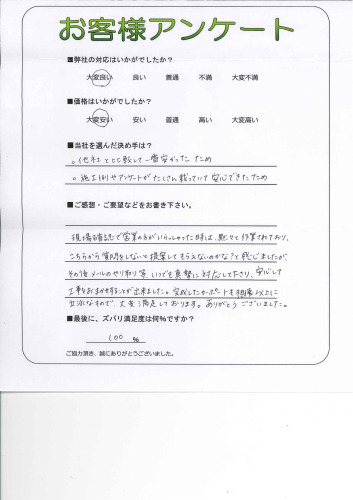 お客様アンケート
■弊社の対応はいかがでしたか？
大変良い 良い 普通 不満 大変不満
■価格はいかがでしたか？
大変安い 安い 普通 高い 大変高い
■当社を選んだ決め手は？
。他社と比較して一番安かったため
。施工例やアンケートがたくさん載っていて安心できたため
■ご感想・ご要望などをお書き下さい。
現場確認で営業の方がいらっしゃった時は、黙々と作業されており、
こちらから質問をしないと提案してもらえないのかな？と感じましたが、
その後メールのやり取り等、いつでも真摯に対応して下さり、安心して
工事をおまかせすることが出来ました。完成したカーポートも想像以上に
立派なもので、大変満足しております。ありがとうございました。
■最後に、ズバリ満足度は何%ですか？
100 %
ご協力頂き、誠にありがとうございました。